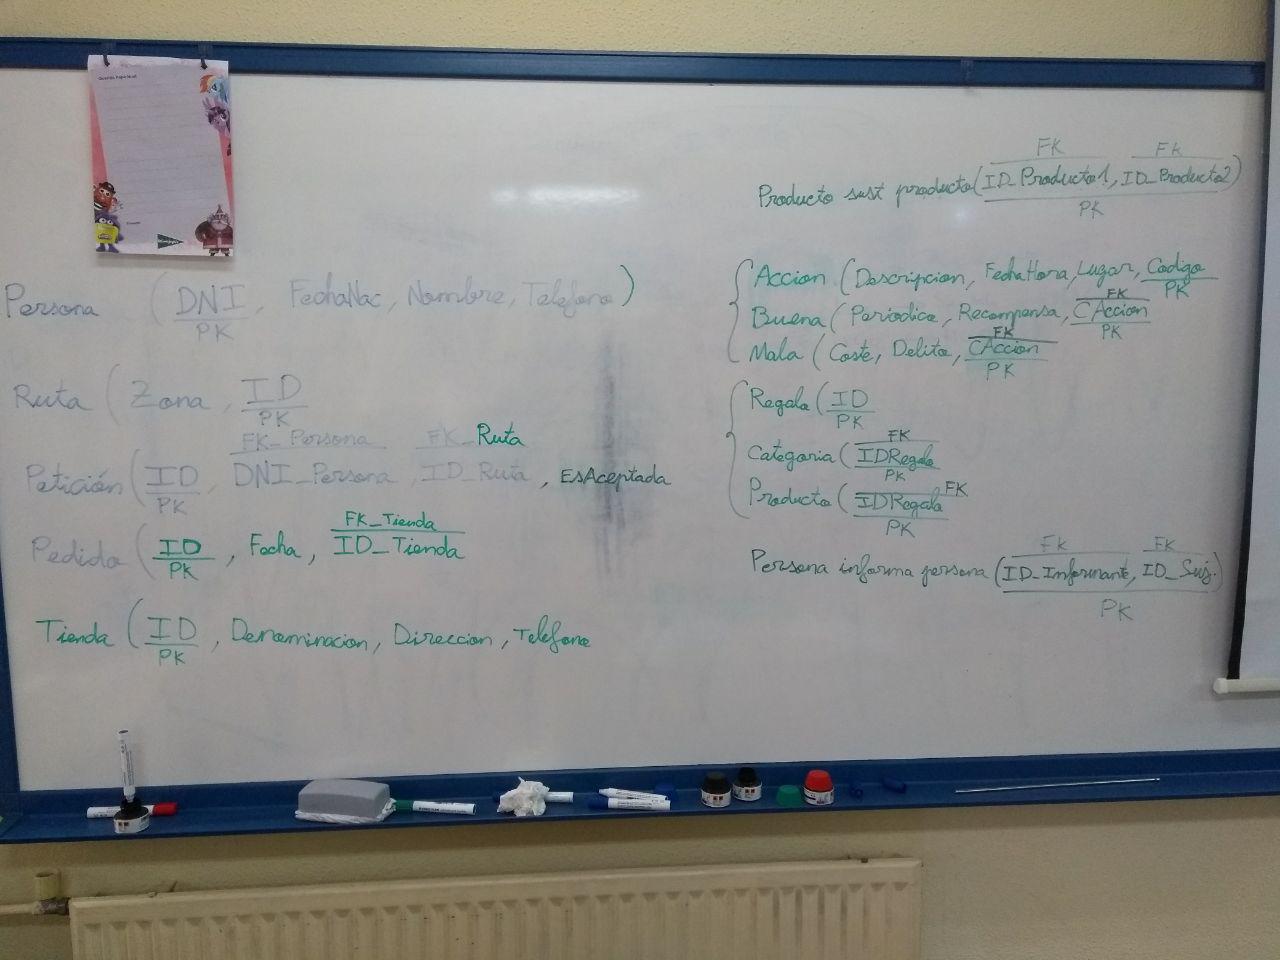 Persona (DNI, FechaNac, Nombre, Telefono)
PK
Ruta (Zona, ID
PK
FK_Persona FK_Ruta
Petición (ID, DNI_Persona, ID_Ruta, EsAceptada
PK
FK_Tienda
Pedido (ID, Fecha, ID_Tienda
PK
Tienda (ID, Denominacion, Direccion, Telefono
PK
FK FK
Producto sust producto (ID_Producto1, ID_Producto2)
PK
Accion (Descripcion, FechaHora, Lugar, Codigo
PK
FK
Buena (Periodica, Recompensa, CAccion
PK
FK
Mala (Coste, Delito, CAccion
PK
Regalo (ID
PK
FK
Categoria (IDRegalo
PK
FK
Producto (IDRegalo
PK
FK FK
Persona informa persona (ID_Informante, ID_Suj.)
PK